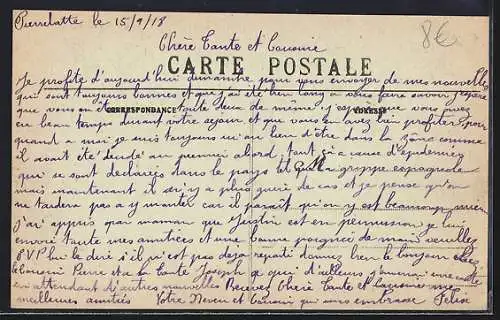 Pierrelatte le 15/9/18
8€
Chère Tante et Cousine
CARTE POSTALE
Je profite d'aujourd'hui dimanche pour vous envoyer de mes nouvelles
qui sont toujours bonnes et que j'ai été bien long à vous faire savoir j'espère
que vous en êtes toute deux de même, j'espère que vous avez
CORRESPONDANCE
ADRESSE
eu beau temps durant votre séjour et que vous en avez bien profité pour
quand a moi je suis toujours au lieu d'être dans la zône comme
il avait été décidé au premier abord, tout ça a cause d'épidémies
qui se sont declarées dans le pays tel que la grippe espagnole
mais maintenant il n'y a plus guère de cas et je pense qu'on
ne tardera pas a y monter car il parait qu'on y est beaucoup mieux
j'ai appris par maman que Justin est en permission je lui
envoie toute mes amitiés et une bonne poignée de main veuillez
S V P lui le dire s'il n'est pas déjà reparti donnez bien le bonjour
le Cousin Pierre et a la tante Joseph ce qui d'ailleurs j'enverrai une carte
en attendant d'autres nouvelles Recevez Chère Tante et Cousine mes
meilleures amitiés Votre Neveu et Cousin qui vous embrasse Felix